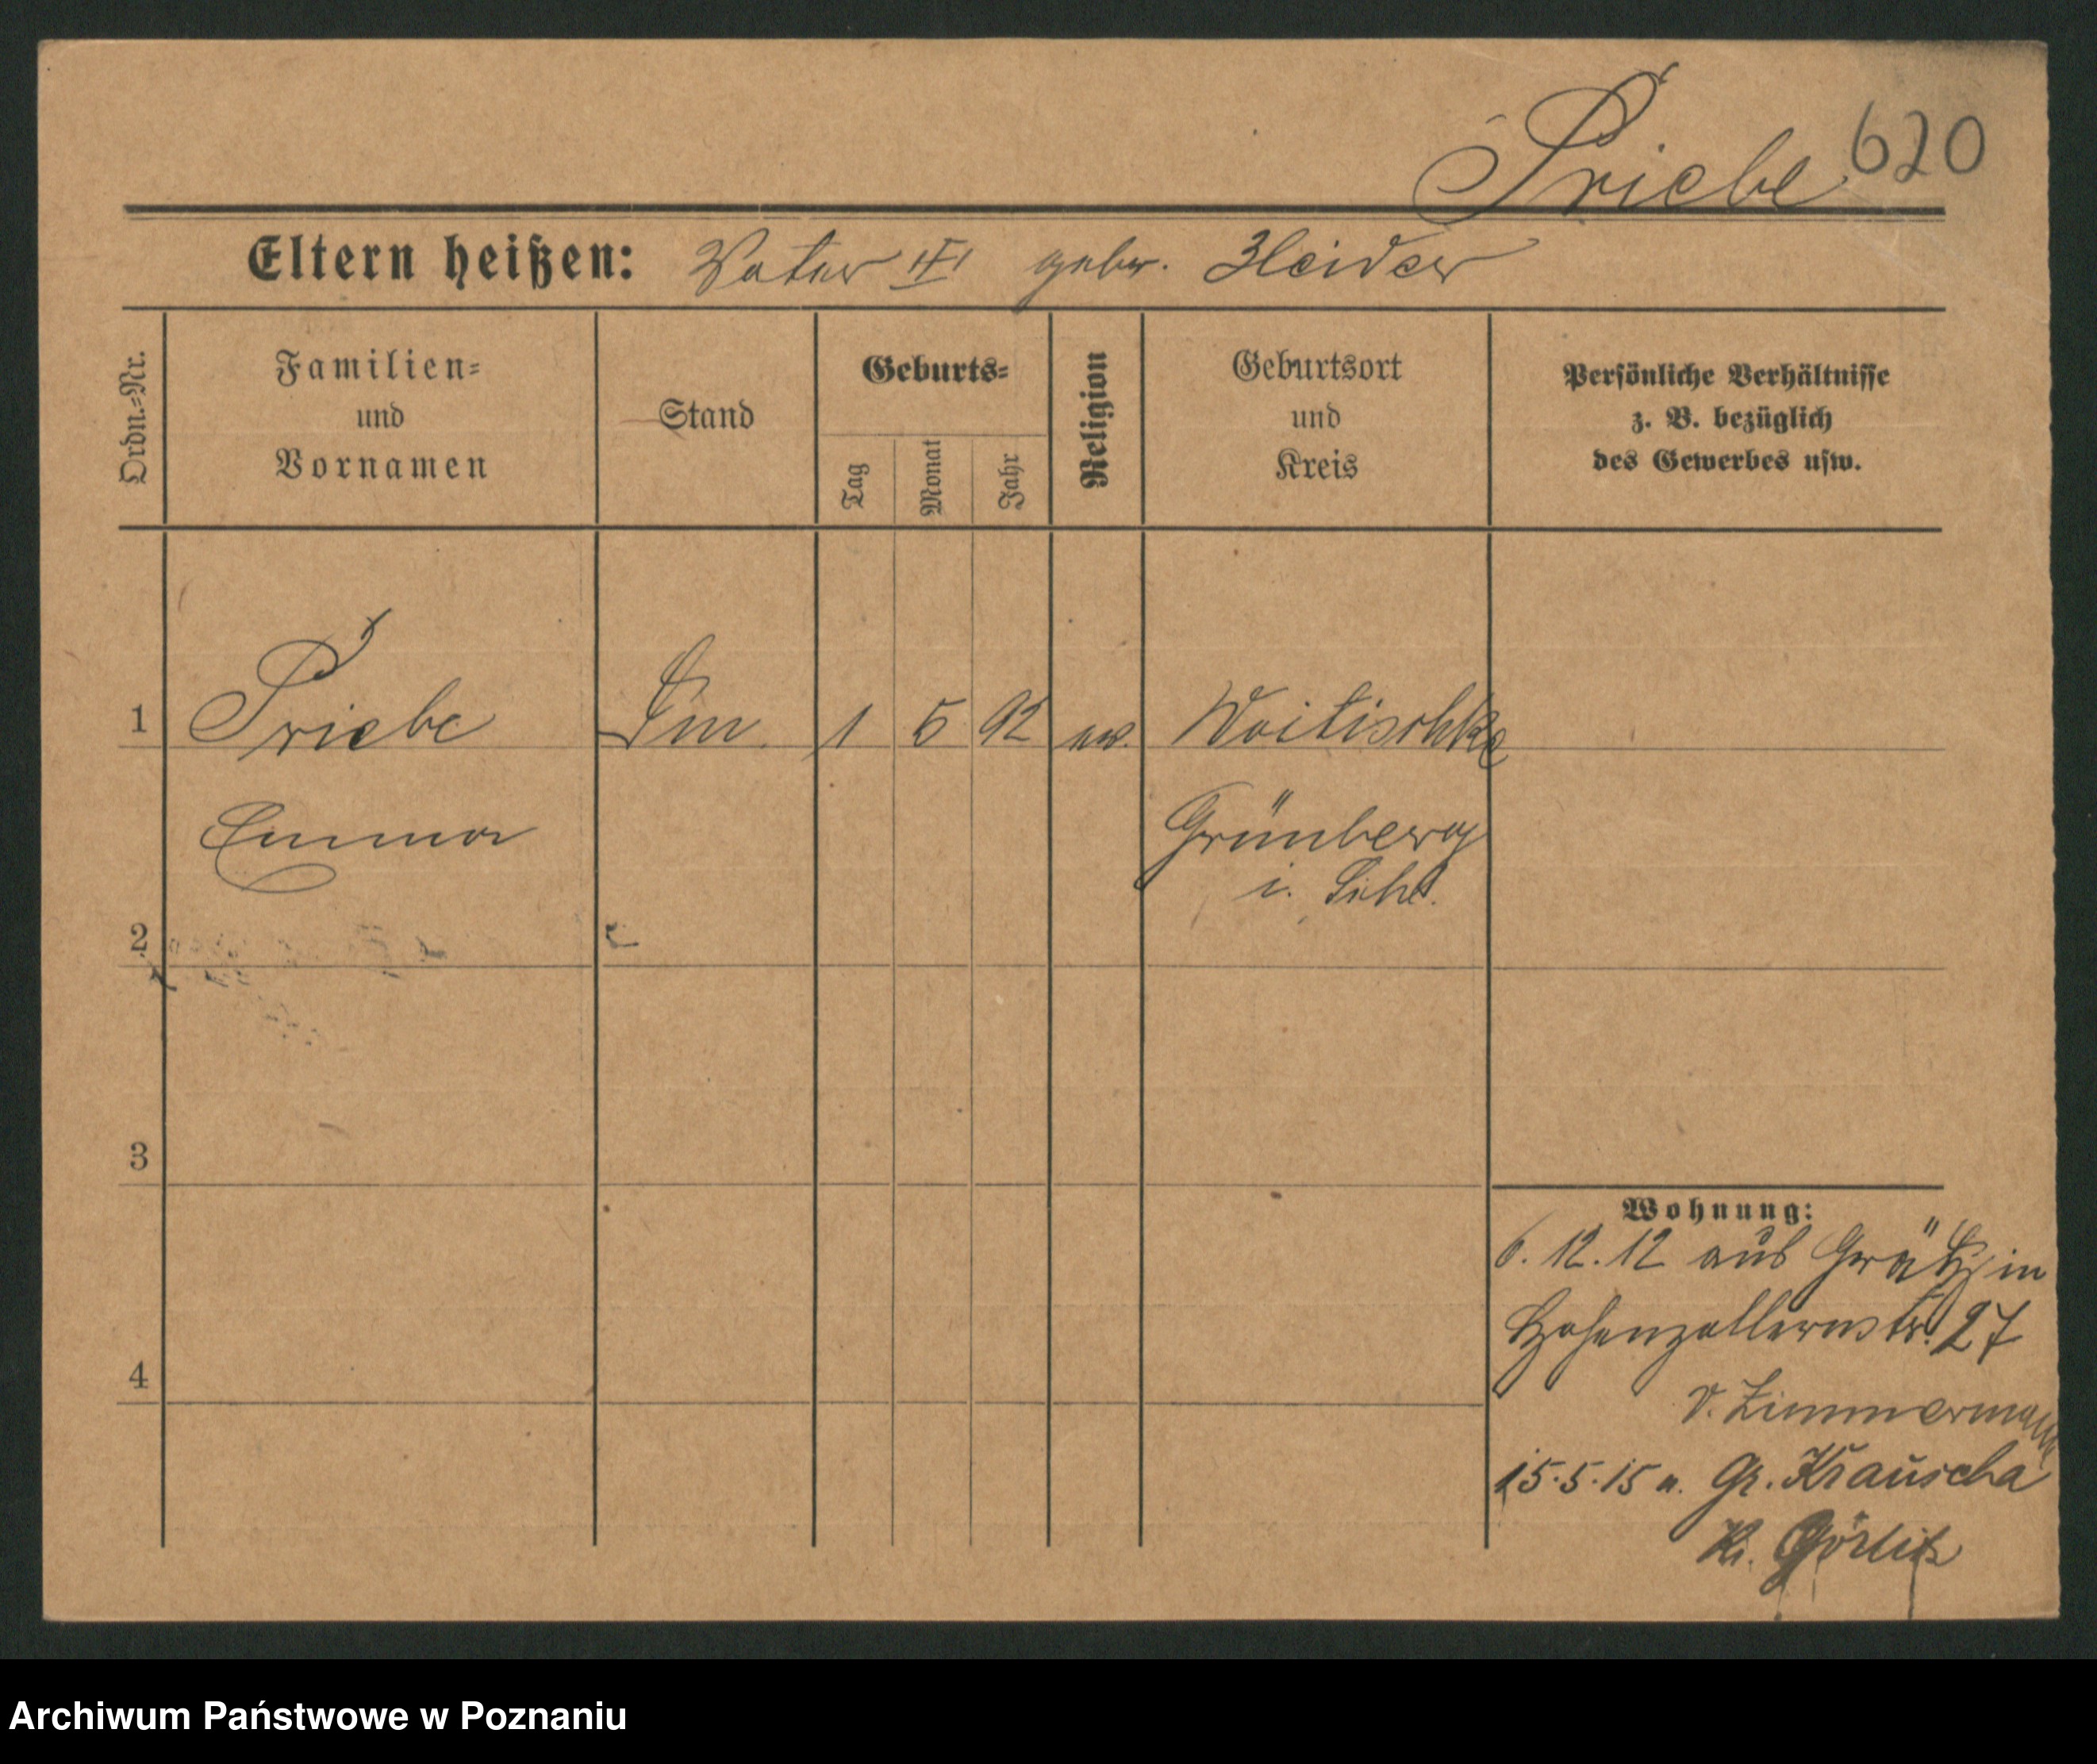 Priebe 620
Eltern heißen: Vater III gebr. Heider
Ordn.=Nr.
Familien=
und
Vornamen
Stand
Geburts=
Tag
Monat
Jahr
Religion
Geburtsort
und
Kreis
Persönliche Verhältnisse
z. B. bezüglich
des Gewerbes usw.
1 Priebe 1 5 92 ev. Woitischke
Emma Grünberg
i. Schl.
2
3
4
Wohnung:
6. 12. 12 aus Grätz in
Hohenzollernstr. 27
v. Zimmermann
15.5.15 n. Gr. Krauscha
Kr. Görlitz
Archiwum Państwowe w Poznaniu